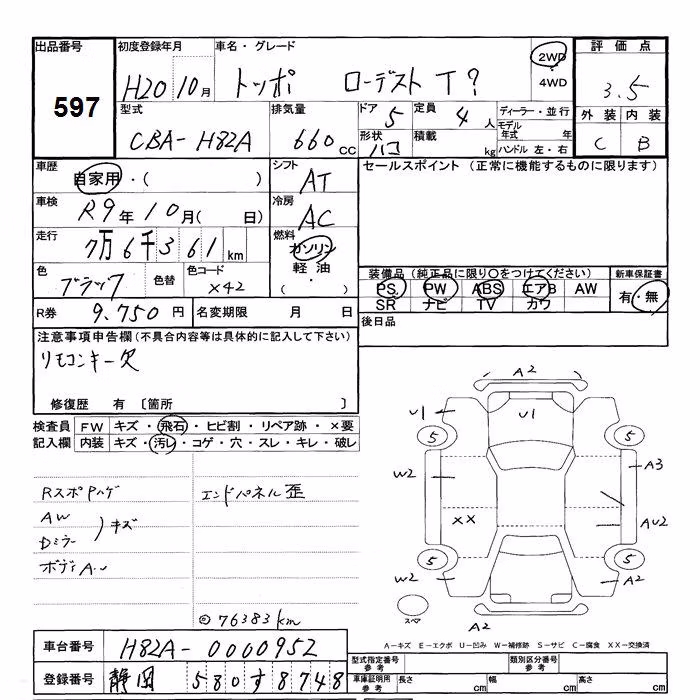 出品番号 初度登録年月 車名・グレード 2WD 評価点
597 H20 10月 トッポ ローデスト T? 4WD 3.5
型式 排気量 ドア 5 定員 4人 ディーラー・並行 外装 内装
CBA-H82A 660cc 形状 ハコ 積載 kg モデル年式 年 ハンドル 左・右 C B
車歴 自家用・( ) シフト AT セールスポイント (正常に機能するものに限ります)
車検 R9年10月( 日) 冷房 AC
走行 7万6千361km 燃料 ガソリン
色 ブラック 色替 色コード X42 軽油 ( ・ ) 装備品(純正品に限り〇をつけてください) 新車保証書
PS PW ABS エアB AW 有・無
R券 9.750円 名変期限 月 日 SR ナビ TV カワ
注意事項申告欄(不具合内容等は具体的に記入して下さい) 後日品
リモコンキー欠
修復歴 有 〔箇所 〕
検査員 FW キズ・飛石・ヒビ割・リペア跡・×要
記入欄 内装 キズ・汚レ・コゲ・穴・スレ・キレ・破レ
A2
U1 U1
5 5
W2 A3
RスポPハゲ エンドパネル歪
AW
Dミラー )キズ
XX AU2
ボディA..
5 5
W2 A2
◎76383km スペア
A2
A-キズ E-エクボ U-凹み W-補修跡 S-サビ C-腐食 XX-交換済
車台番号 H82A-0000952
型式指定番号 参考 類別区分番号 参考
登録番号 静岡 580 す 8748
車庫証明用 参考 長さ cm 幅 cm 高さ cm